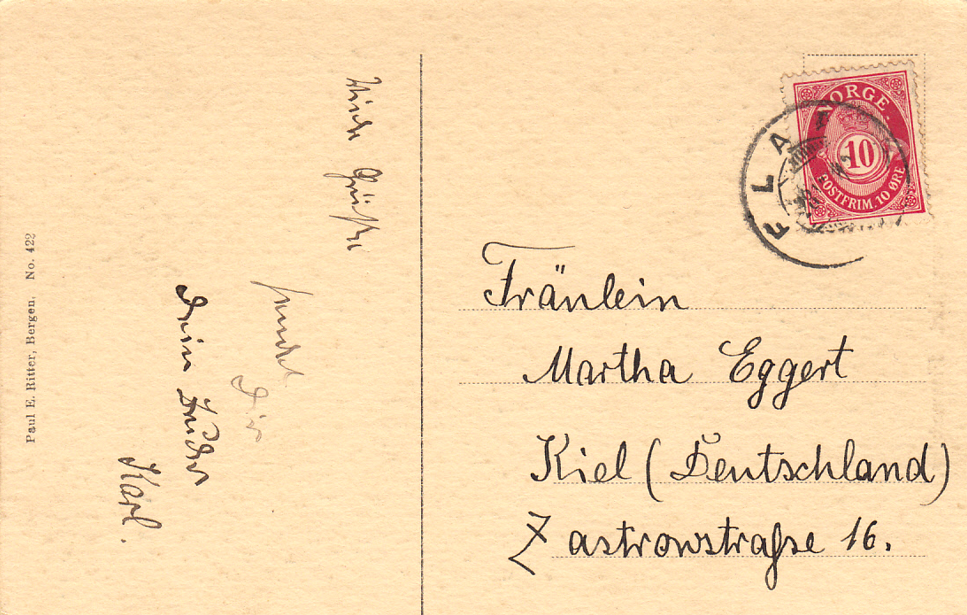 Paul E. Ritter, Bergen. No. 422
Grüße
sendet
Dir
Dein Bruder
Karl.
NORGE.
10
POSTFRIM. 10 ØRE
FLA
Fräulein
Martha Eggert
Kiel (Deutschland)
Zastrowstraße 16.